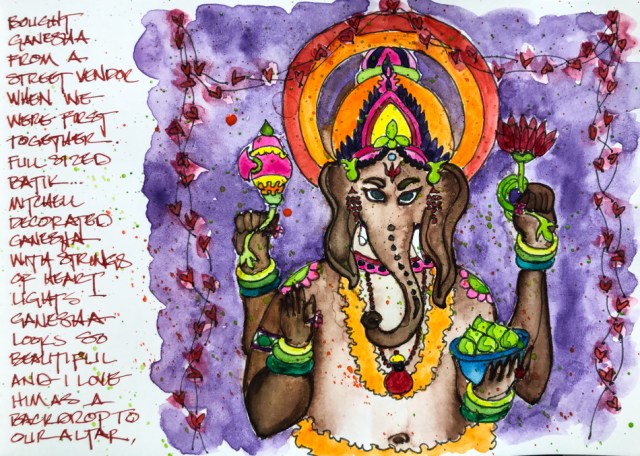 BOUGHT
GANESHA
FROM A
STREET VENDOR
WHEN WE
WERE FIRST
TOGETHER.
FULL SIZED
BATIK...
MITCHELL
DECORATED
GANESHA
WITH STRINGS
OF HEART
LIGHTS
GANESHA
LOOKS SO
BEAUTIFUL
AND I LOVE
HIM AS A
BACKDROP TO
OUR ALTAR.